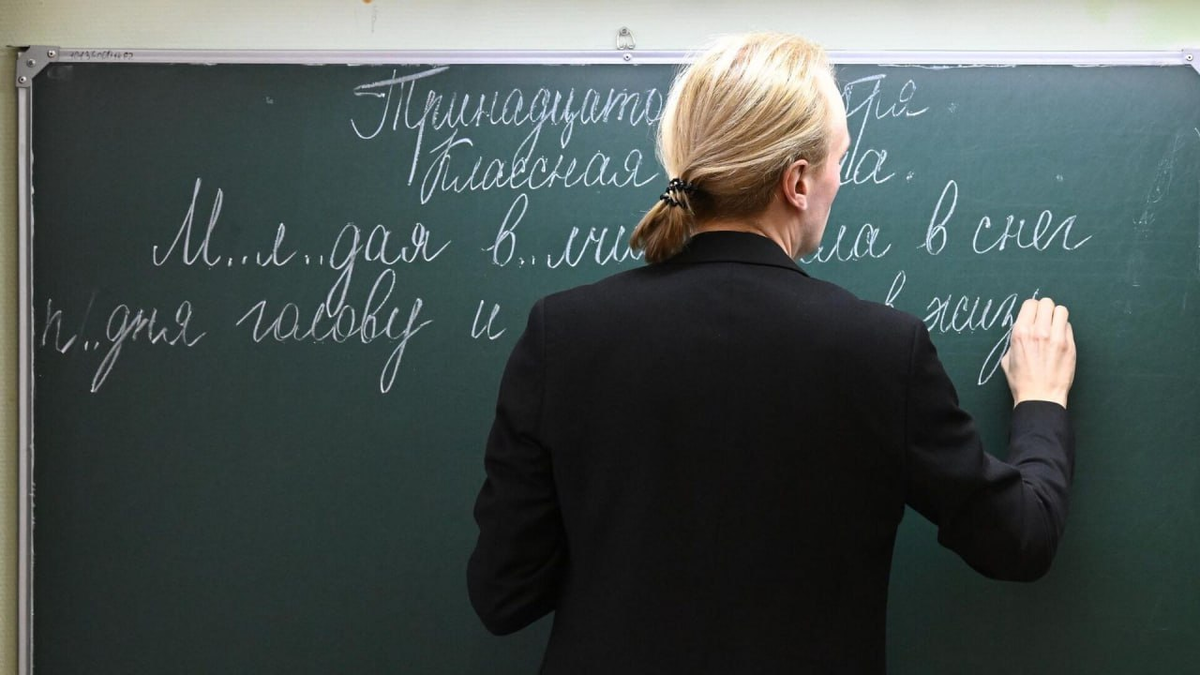 Тринадцато ря
Классная та.
М..л..дая в..лчи ла в снег
п..дня голову и в жиз